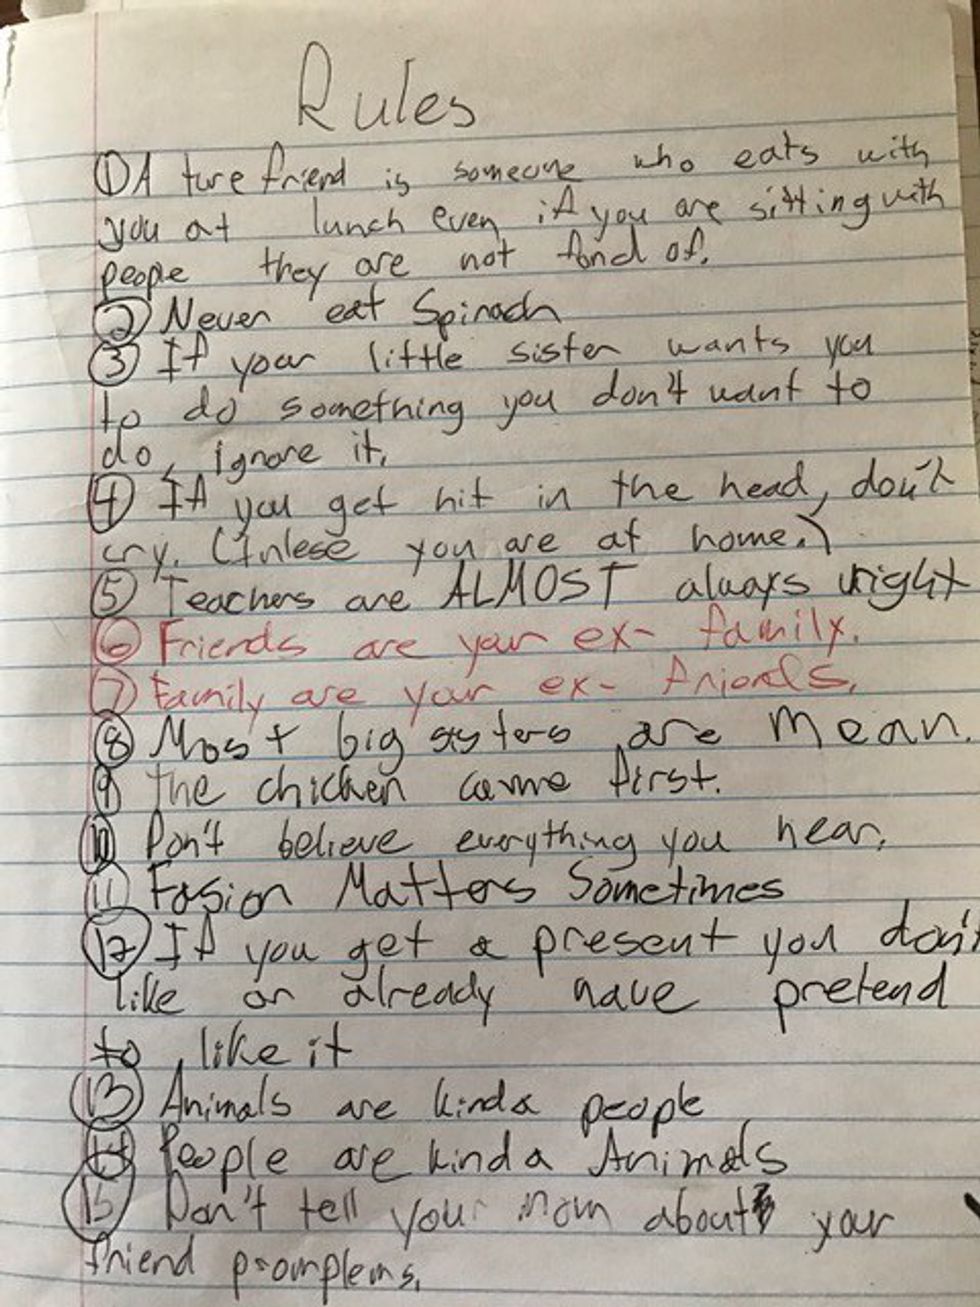 Rules
① A ture friend is someone who eats with
you at lunch even if you are sitting with
people they are not fond of.
② Never eat Spinach
③ If your little sister wants you
to do something you don't want to
do, ignore it.
④ If you get hit in the head, don't
cry. (Unlese you are at home.)
⑤ Teachers are ALMOST always right
⑥ Friends are your ex- family.
⑦ Family are your ex- friends.
⑧ Most big sisters are mean.
⑨ The chicken came first.
⑩ Don't believe everything you hear.
⑪ Fasion Matters Sometimes
⑫ If you get a present you don't
like or already have pretend
to like it
⑬ Animals are kinda people
⑭ People are kinda Animals
⑮ Don't tell your mom about your
friend promplems.